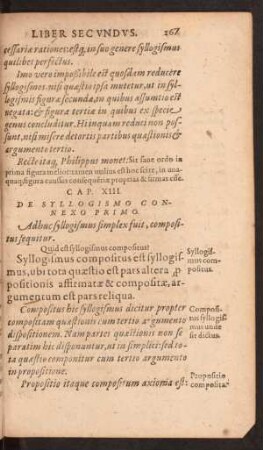 LIBER SECVNDVS. 267
cessaria ratione: estq́; in suo genere syllogismus
quilibet perfectus.
Imo vero impossibile est quosdam reducere
syllogismos, nisi quæstio ipsa mutetur, ut in syl-
logismis figuræ secundæ, in quibus assumtio est
negata: & figuræ tertiæ in quibus ex specie
genus concluditur. Hi inquam reduci non pos-
sunt, nisi misere detortis partibus quæstionis &
argumento tertio.
Recte itaq́; Philippus monet: Sit sane ordo in
prima figura melior: tamen multũ est hoc scire, in una-
quaq; figura causas consequẽtiæ proprias & firmas esse.
CAP. XIII.
DE SYLLOGISMO CON-
NEXO PRIMO.
Adhuc syllogismus simplex fuit, composi-
tus sequitur.
Quid est syllogismus compositus?
Syllogismus compositus est syllogis-
mus, ubi tota quæstio est pars altera ꝓ
positionis affirmatæ & compositæ, ar-
gumentum est pars reliqua.
Syllogis-
mus com-
positus.
Compositus hic syllogismus dicitur propter
compositam quæstionis cum tertio argumento
dispositionem. Nam partes quæstionis non se-
paratim hic disponuntur, ut in simplici: sed to-
ta quæstio componitur cum tertio argumento
in propositione.
Composi-
tus syllogis-
mus unde
sic dictus.
Propositio itaque compositum axioma est:
Propositio
composita.